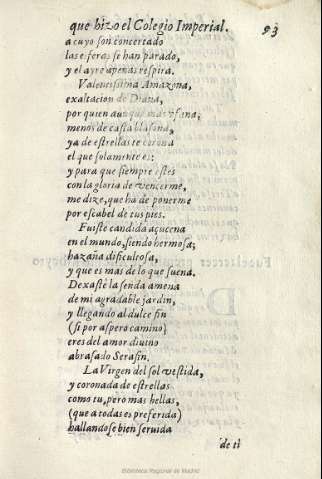 que hizo el Colegio Imperial. 93
a cuyo son concertado
las esferas se han parado,
y el ayre apenas respira.
Valentissima Amazona,
exaltacion de Diana,
por quien aunque mas vfana;
menos de casta blasona,
ya de estrellas te corona
el que solamente es:
y para que siempre estès
con la gloria de vencerme,
me dize, que ha de ponerme
por escabel de tus pies.
Fuiste candida açucena
en el mundo, siendo hermosa;
hazaña dificultosa,
y que es mas de lo que suena.
Dexaste la senda amena
de mi agradable jardin,
y llegando al dulce fin
(si por aspero camino)
eres del amor diuino
abrasado Serafin.
La Virgen del sol vestida,
y coronada de estrellas
como tu, pero mas bellas,
(que a todas es preferida)
hallandose bien seruida
de ti
Biblioteca Regional de Madrid